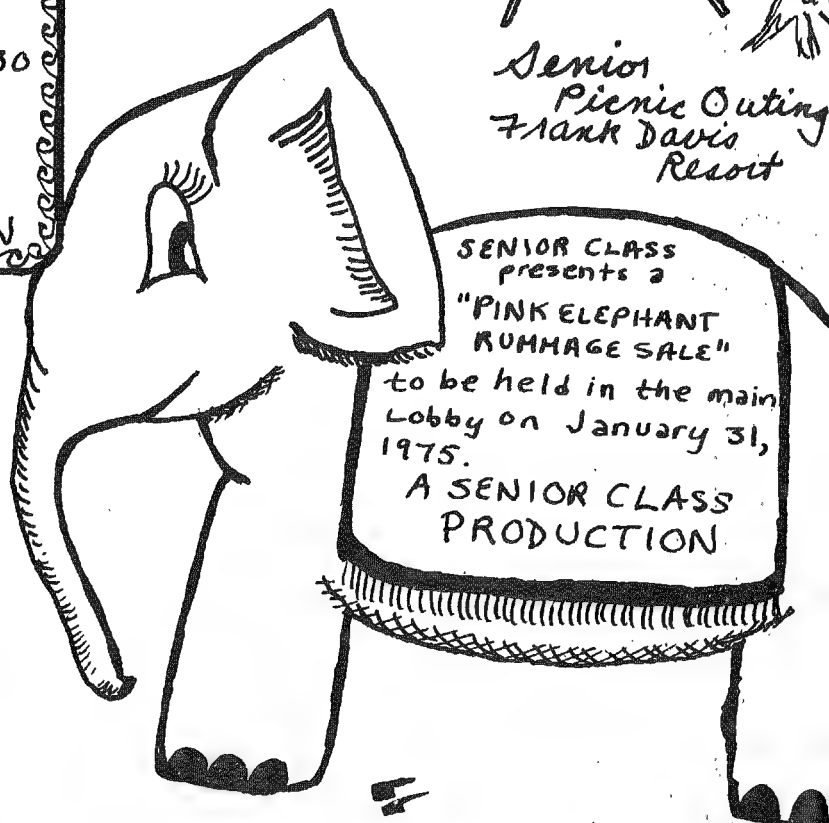 Senior
Picnic Outing
Frank Davis
Resort
SENIOR CLASS
presents a
"PINK ELEPHANT
RUMMAGE SALE"
to be held in the main
Lobby on January 31,
1975.
A SENIOR CLASS
PRODUCTION